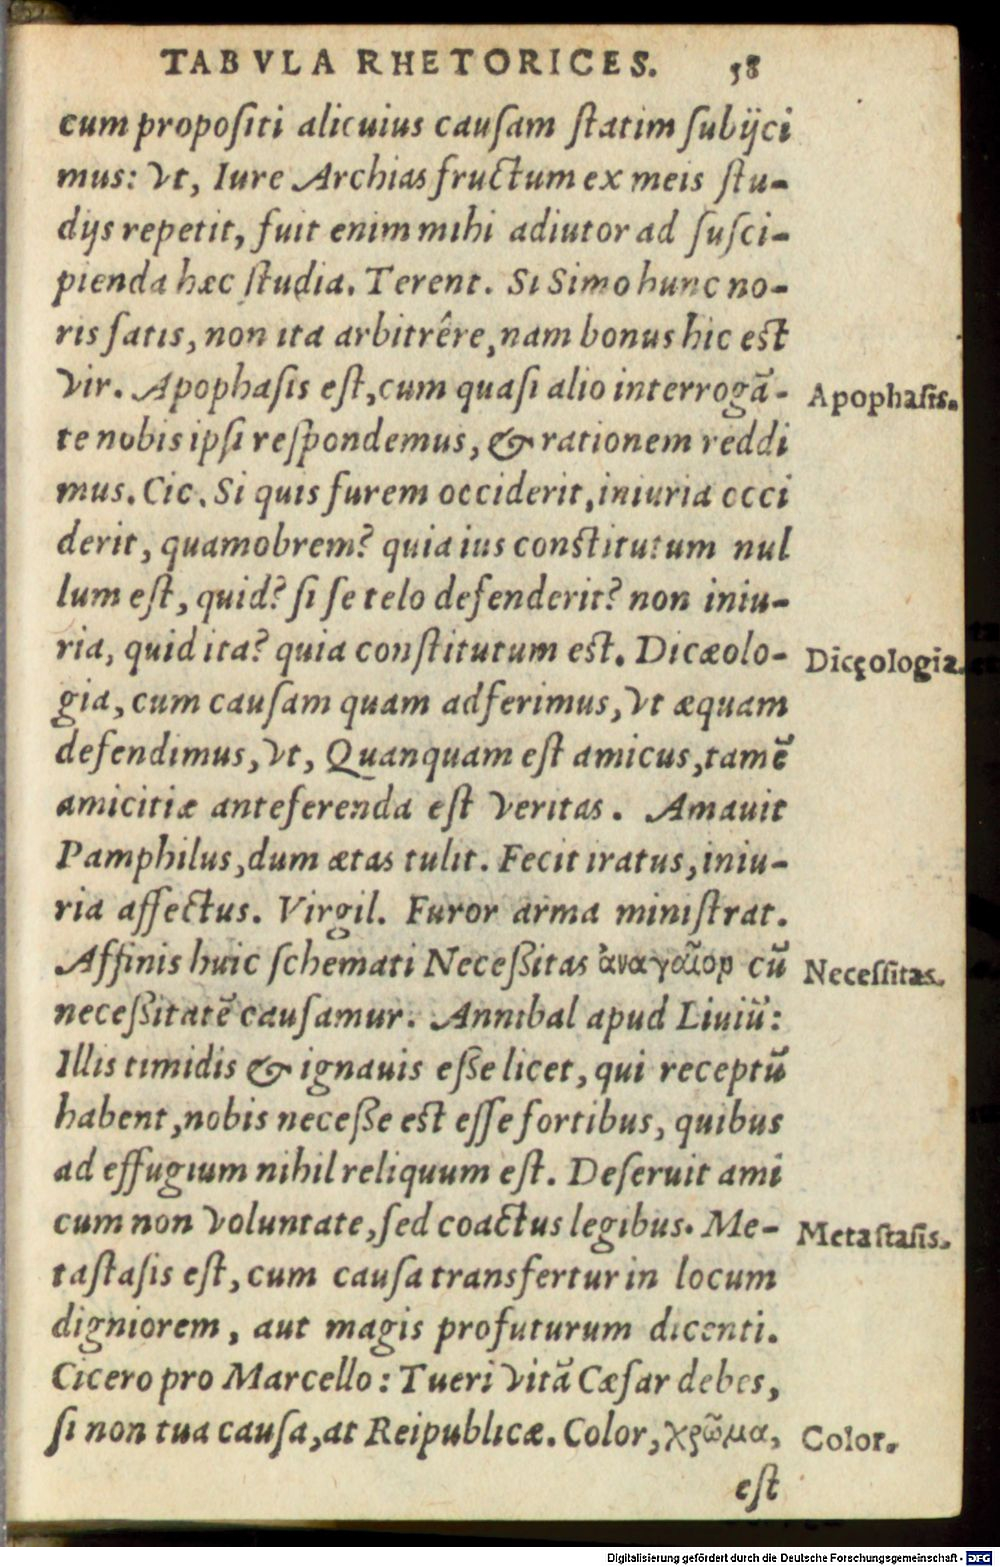 TABVLA RHETORICES. 58
cum propoſiti alicuius cauſam ſtatim ſubijci
mus: vt, Iure Archias fructum ex meis ſtu-
dijs repetit, fuit enim mihi adiutor ad ſuſci-
pienda hæc ſtudia. Terent. Si Simo hunc no-
ris ſatis, non ita arbitrêre, nam bonus hic eſt
vir. Apophaſis eſt, cum quaſi alio interrogã-
Apophaſis.
te nobis ipſi reſpondemus, & rationem reddi
mus. Cic. Si quis furem occiderit, iniuria occi
derit, quamobrem? quia ius conſtitutum nul
lum eſt, quid? ſi ſe telo defenderit? non iniu-
ria, quid ita? quia conſtitutum eſt. Dicæolo-
Dicęologia.
gia, cum cauſam quam adferimus, vt æquam
defendimus, vt, Quanquam eſt amicus, tamẽ
amicitiæ anteferenda eſt veritas. Amauit
Pamphilus, dum ætas tulit. Fecit iratus, iniu-
ria affectus. Virgil. Furor arma miniſtrat.
Affinis huic ſchemati Neceßitas ἀναγαῖορ cũ
Neceſſitas.
neceßitatẽ cauſamur. Annibal apud Liuiũ:
Illis timidis & ignauis eße licet, qui receptũ
habent, nobis neceße eſt eſſe fortibus, quibus
ad effugium nihil reliquum eſt. Deſeruit ami
cum non voluntate, ſed coactus legibus. Me-
Metaſtaſis.
taſtaſis eſt, cum cauſa transfertur in locum
digniorem, aut magis profuturum dicenti.
Cicero pro Marcello: Tueri vitã Cæſar debes,
ſi non tua cauſa, at Reipublicæ. Color, χρῶμα,
Color.
eſt
Digitalisierung gefördert durch die Deutsche Forschungsgemeinschaft - DFG